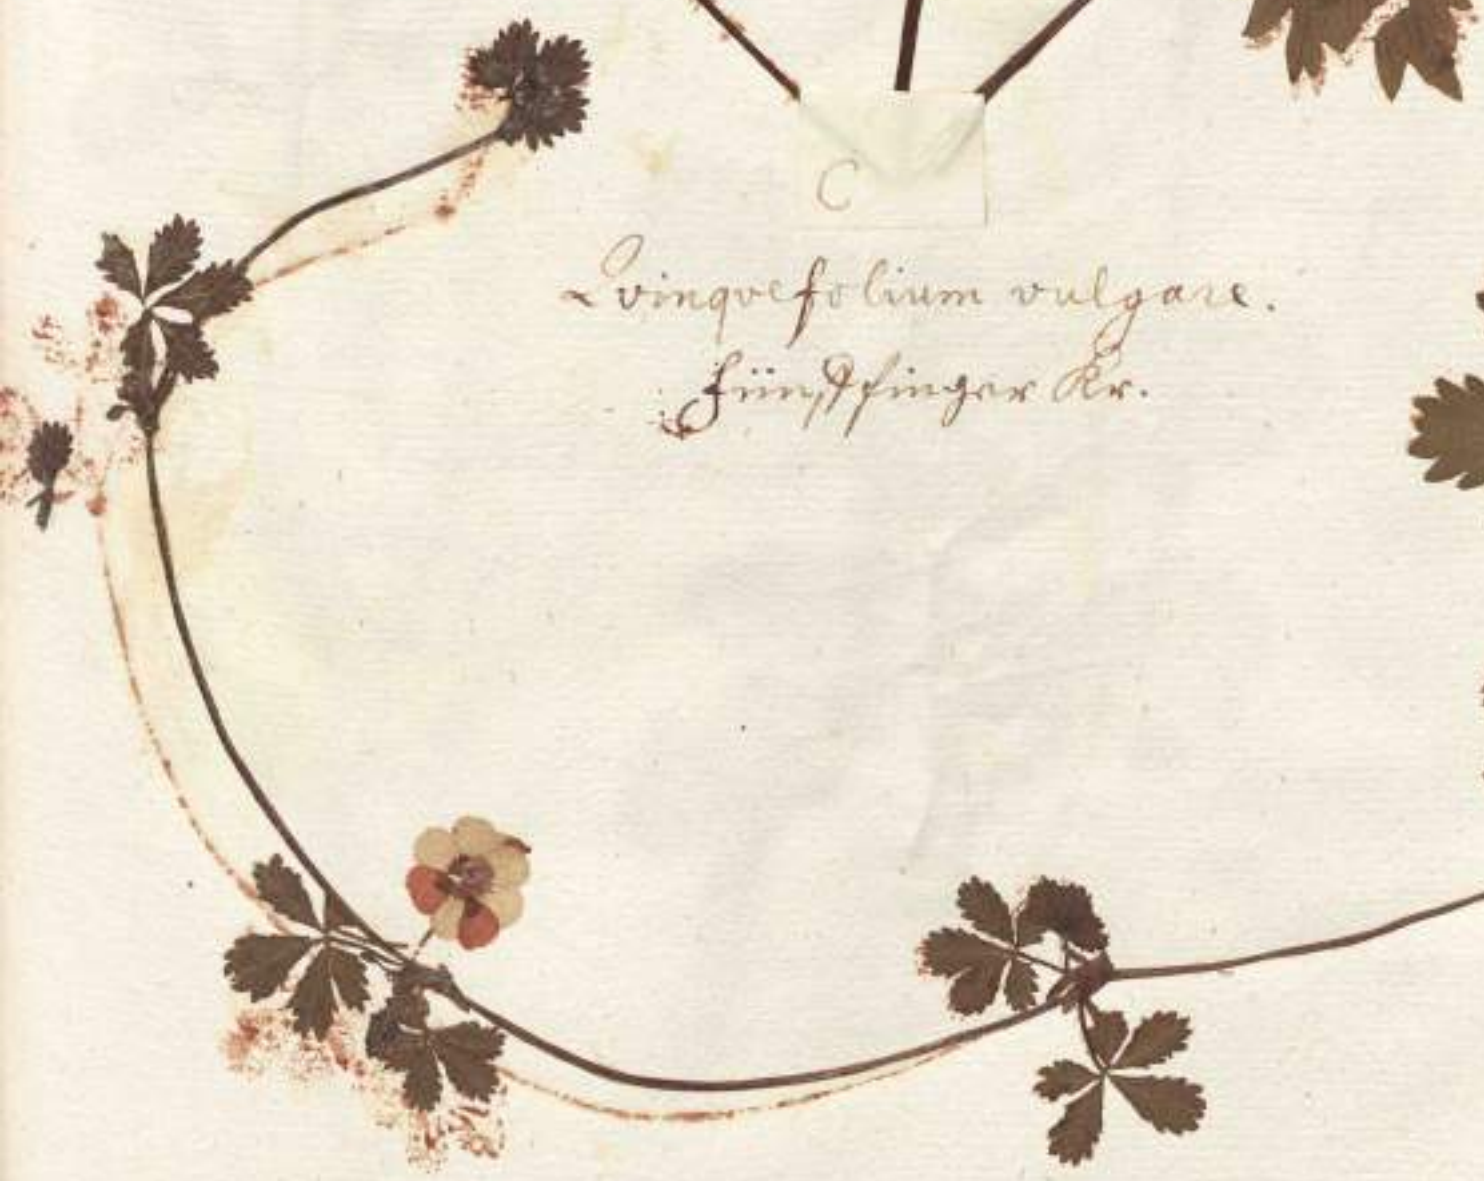 C
Qvinqvefolium vulgare.
Fünffinger Kr.